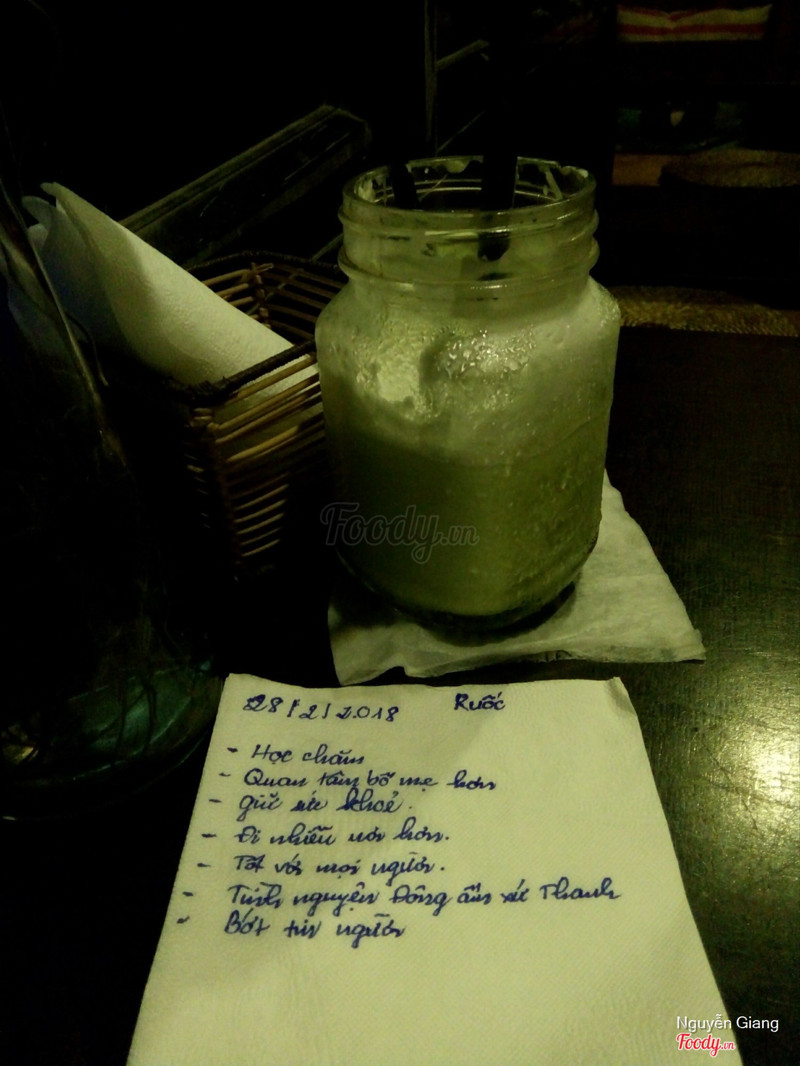 Foody.vn
28/2/2018 Ruốc
- Học chăm
- Quan tâm bố mẹ hơn
- giữ sức khoẻ.
- Đi nhiều nơi hơn.
- Tốt với mọi người.
- Tình nguyện Đông ấm xứ Thanh
- Bớt tin người
Nguyễn Giang
Foody.vn